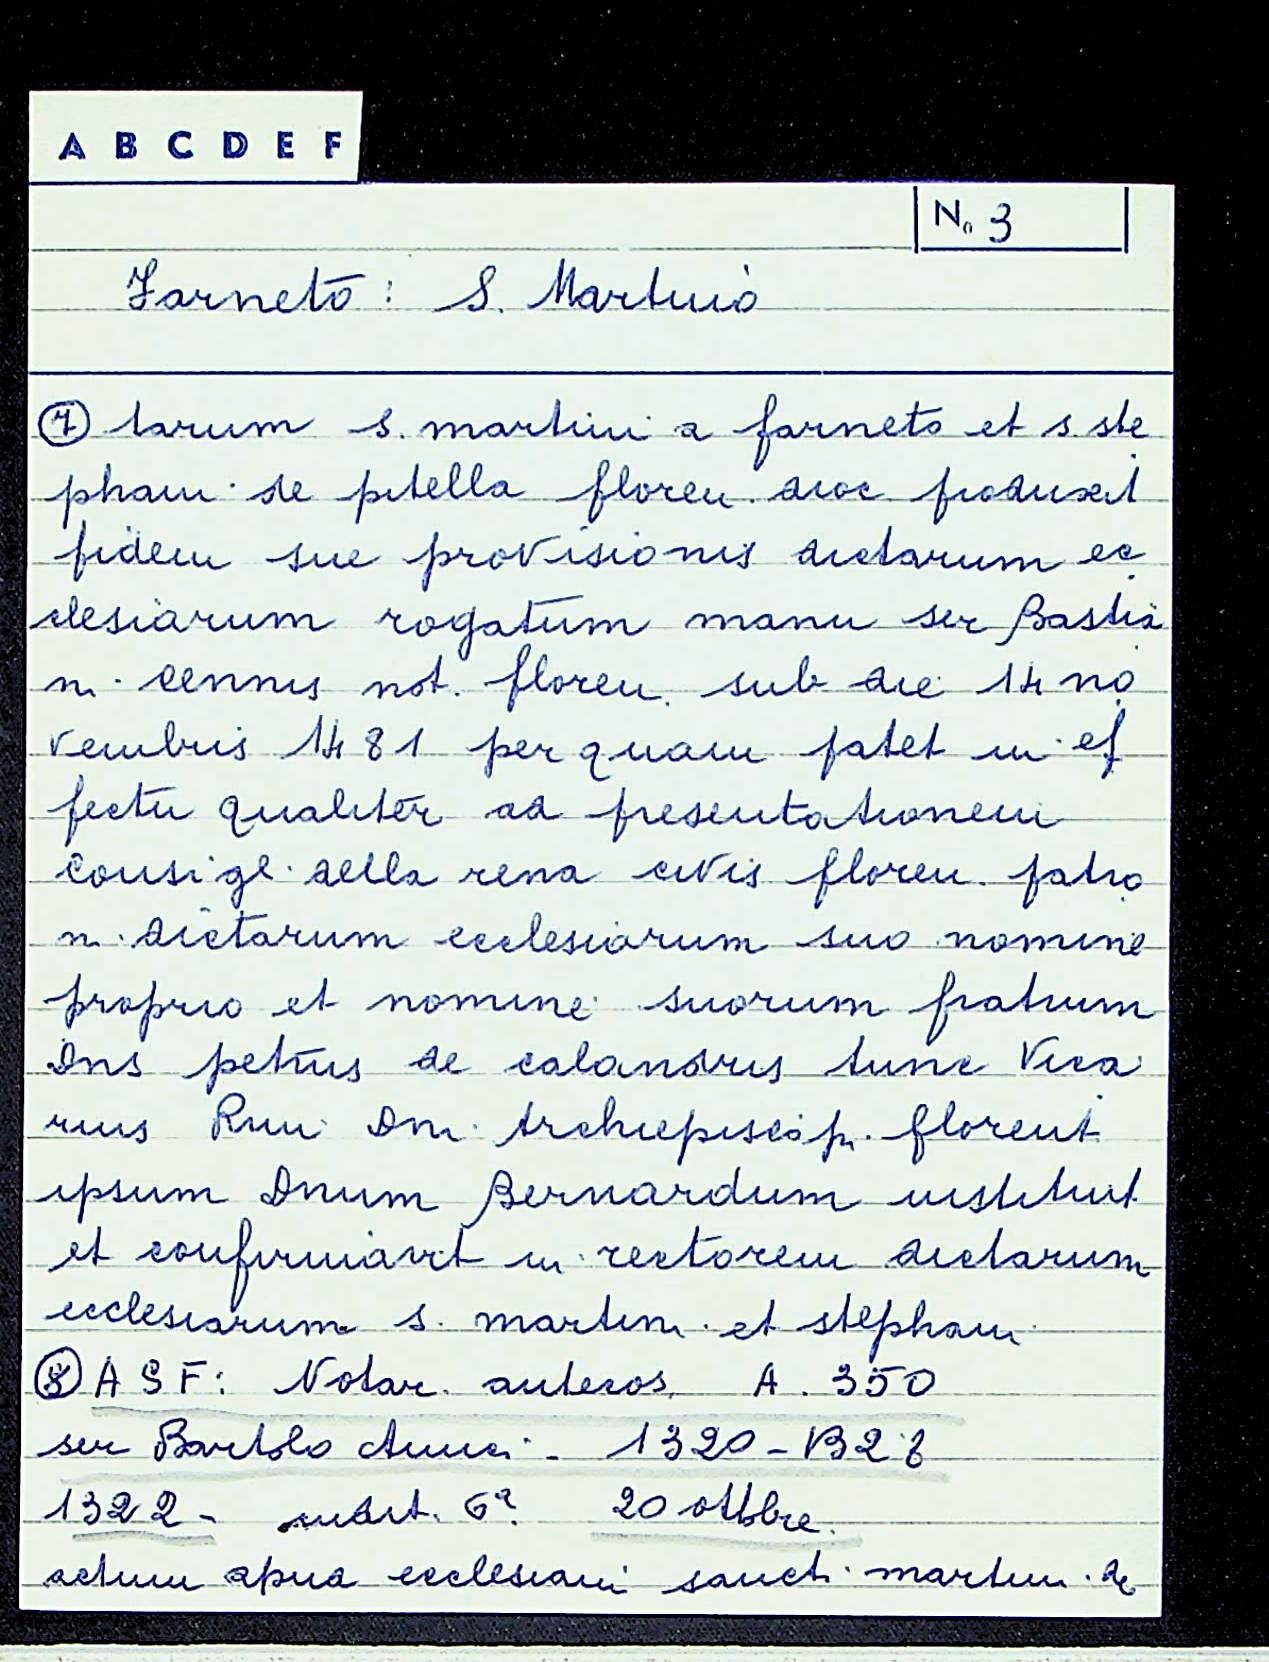 A B C D E F
No 3
Farneto: S. Martino
⑦ tarum s. martini a farneto et s. ste
phani de pitella floren. dioc produxit
fidem sue provisionis dictarum ec
clesiarum rogatum manu ser Bastia
ni cennis not. floren. sub die 14 no
vembris 1481 per quam patet in ef
fectu qualiter ad presentationem
consigl. della rena civis floren. patro
ni dictarum ecclesiarum suo nomine
proprio et nomine suorum fratrum
Dns petrus de calandris tunc Vica
rius Rmi Dni Archiepiscopi florent
ipsum Dnum Bernardum instituit
et confirmavit in rectorem dictarum
ecclesiarum s. martini et stephani
⑧ A S F: Notar. antecos. A. 350
ser Bartolo Amici - 1320-1328
1322 - indit. 6ª 20 ottbre.
actum apud ecclesiam sancti martini de